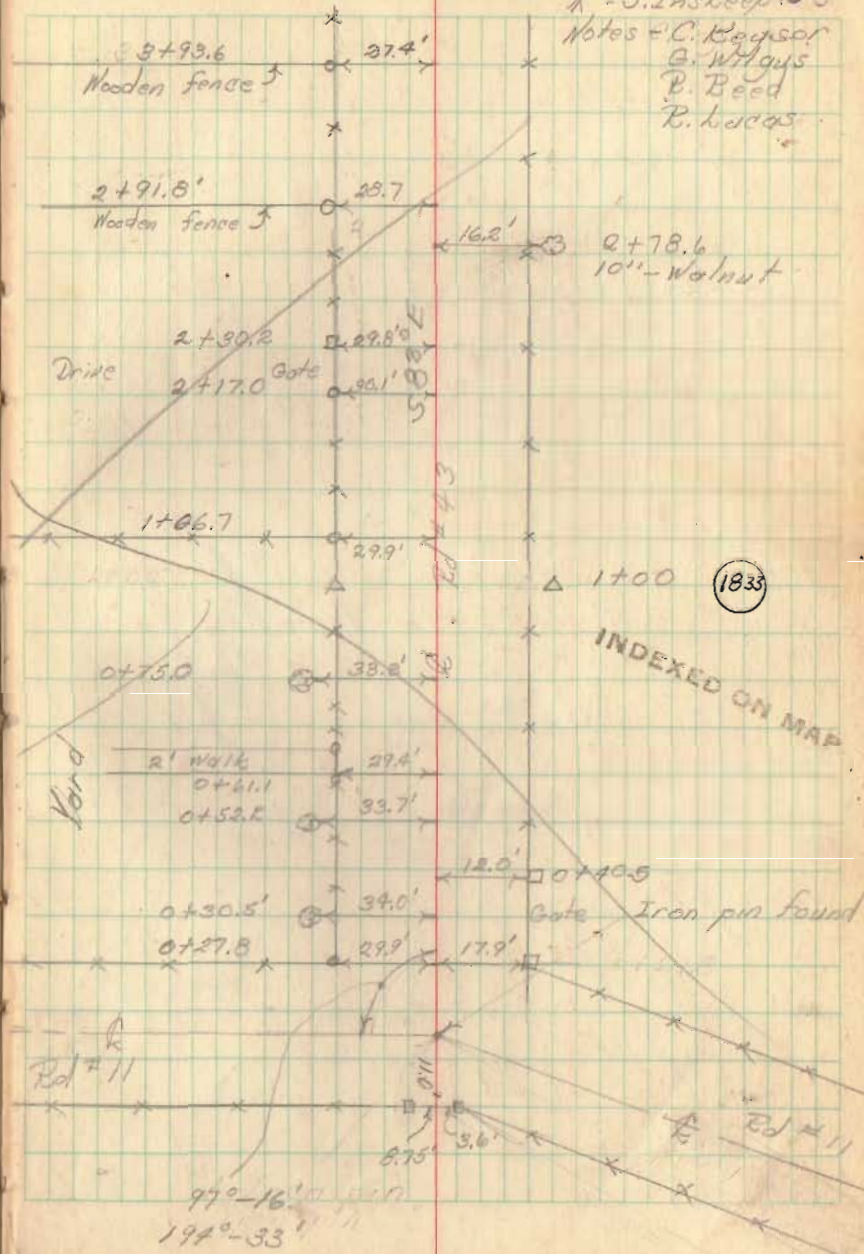 Notes - C. Keysor
G. Wilgus
B. Beed
R. Lucas
3+93.6
37.4'
Wooden fence
2+91.8'
28.7
Wooden fence
16.2'
2+78.6
10"-Walnut
2+30.2
29.8'
Drive
Gate
2+17.0
30.1'
S 88° E
1+66.7
29.9'
Rd #43
1+00
1833
INDEXED ON MAP
0+75.0
33.8'
Yard
2' Walk
29.4'
0+61.1
33.7'
12.0'
0+40.5
0+30.5'
34.0'
Gate
Iron pin found
0+27.8
29.9'
17.9'
Rd #11
11.0'
Rd #11
8.75'
3.6'
97°-16'
194°-33'